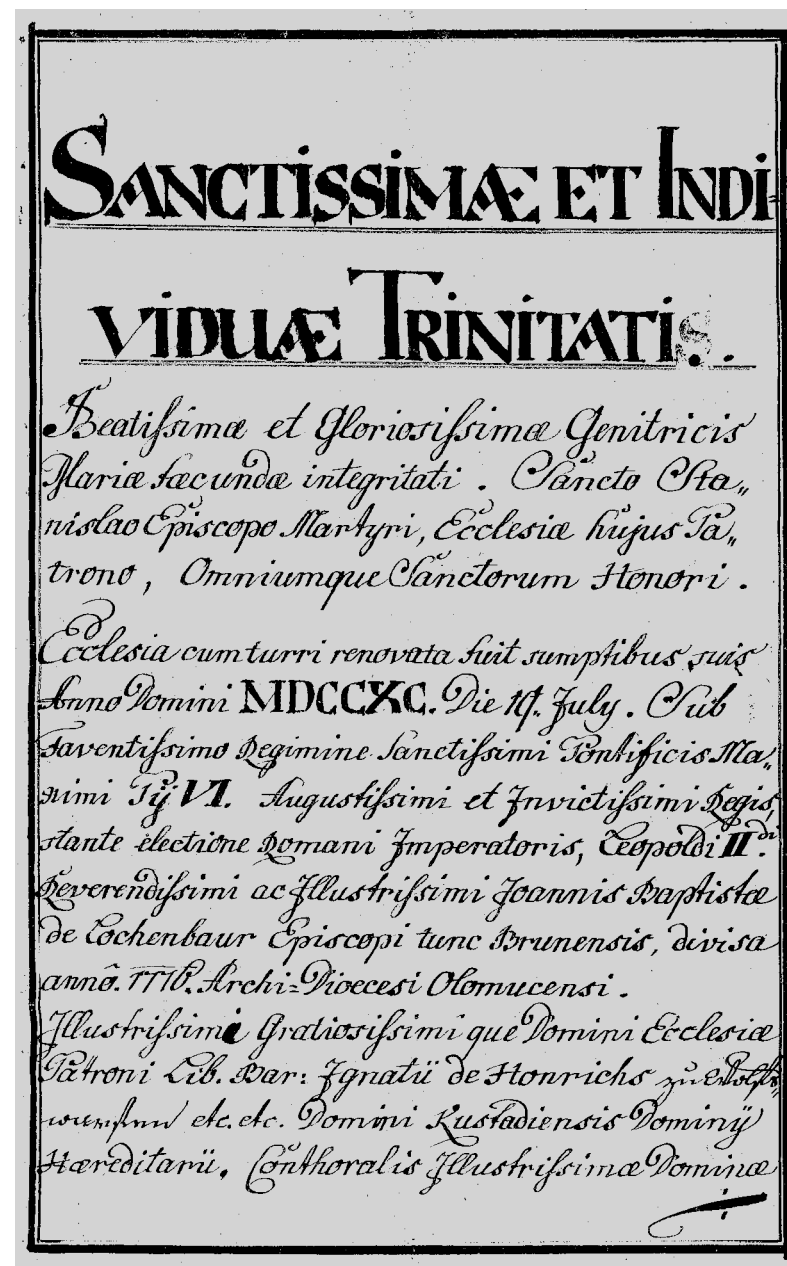 SANCTISSIMÆ ET INDI-
VIDUÆ TRINITATIS.
Beatissimæ et Gloriosissimæ Genitricis
Mariæ fæcundæ integritati. Sancto Sta„
nislao Episcopo Martyri, Ecclesiæ hujus Pa„
trono, Omniumque Sanctorum Honori.
Ecclesia cum turri renovata fuit sumptibus suis
Anno Domini MDCCXC. Die 19. July. Sub
Faventissimo Regimine Sanctissimi Pontificis Ma„
ximi Pÿ VI. Augustissimi et Invictissimi Regis,
stante electione Romani Imperatoris, Leopoldi II di.
Reverendissimi ac Illustrissimi Joannis Baptistæ
de Lochenbaur Episcopi tunc Brunensis, divisa
annô. 1776. Archi-Dioecesi Olomucensi.
Illustrissimi Gratiosissimique Domini Ecclesiæ
Patroni Lib. Bar: Ignatii de Honrichs zu
etc. etc. Domini Kustadiensis Dominÿ
Hæreditarii. Conthoralis Illustrissimæ Dominæ